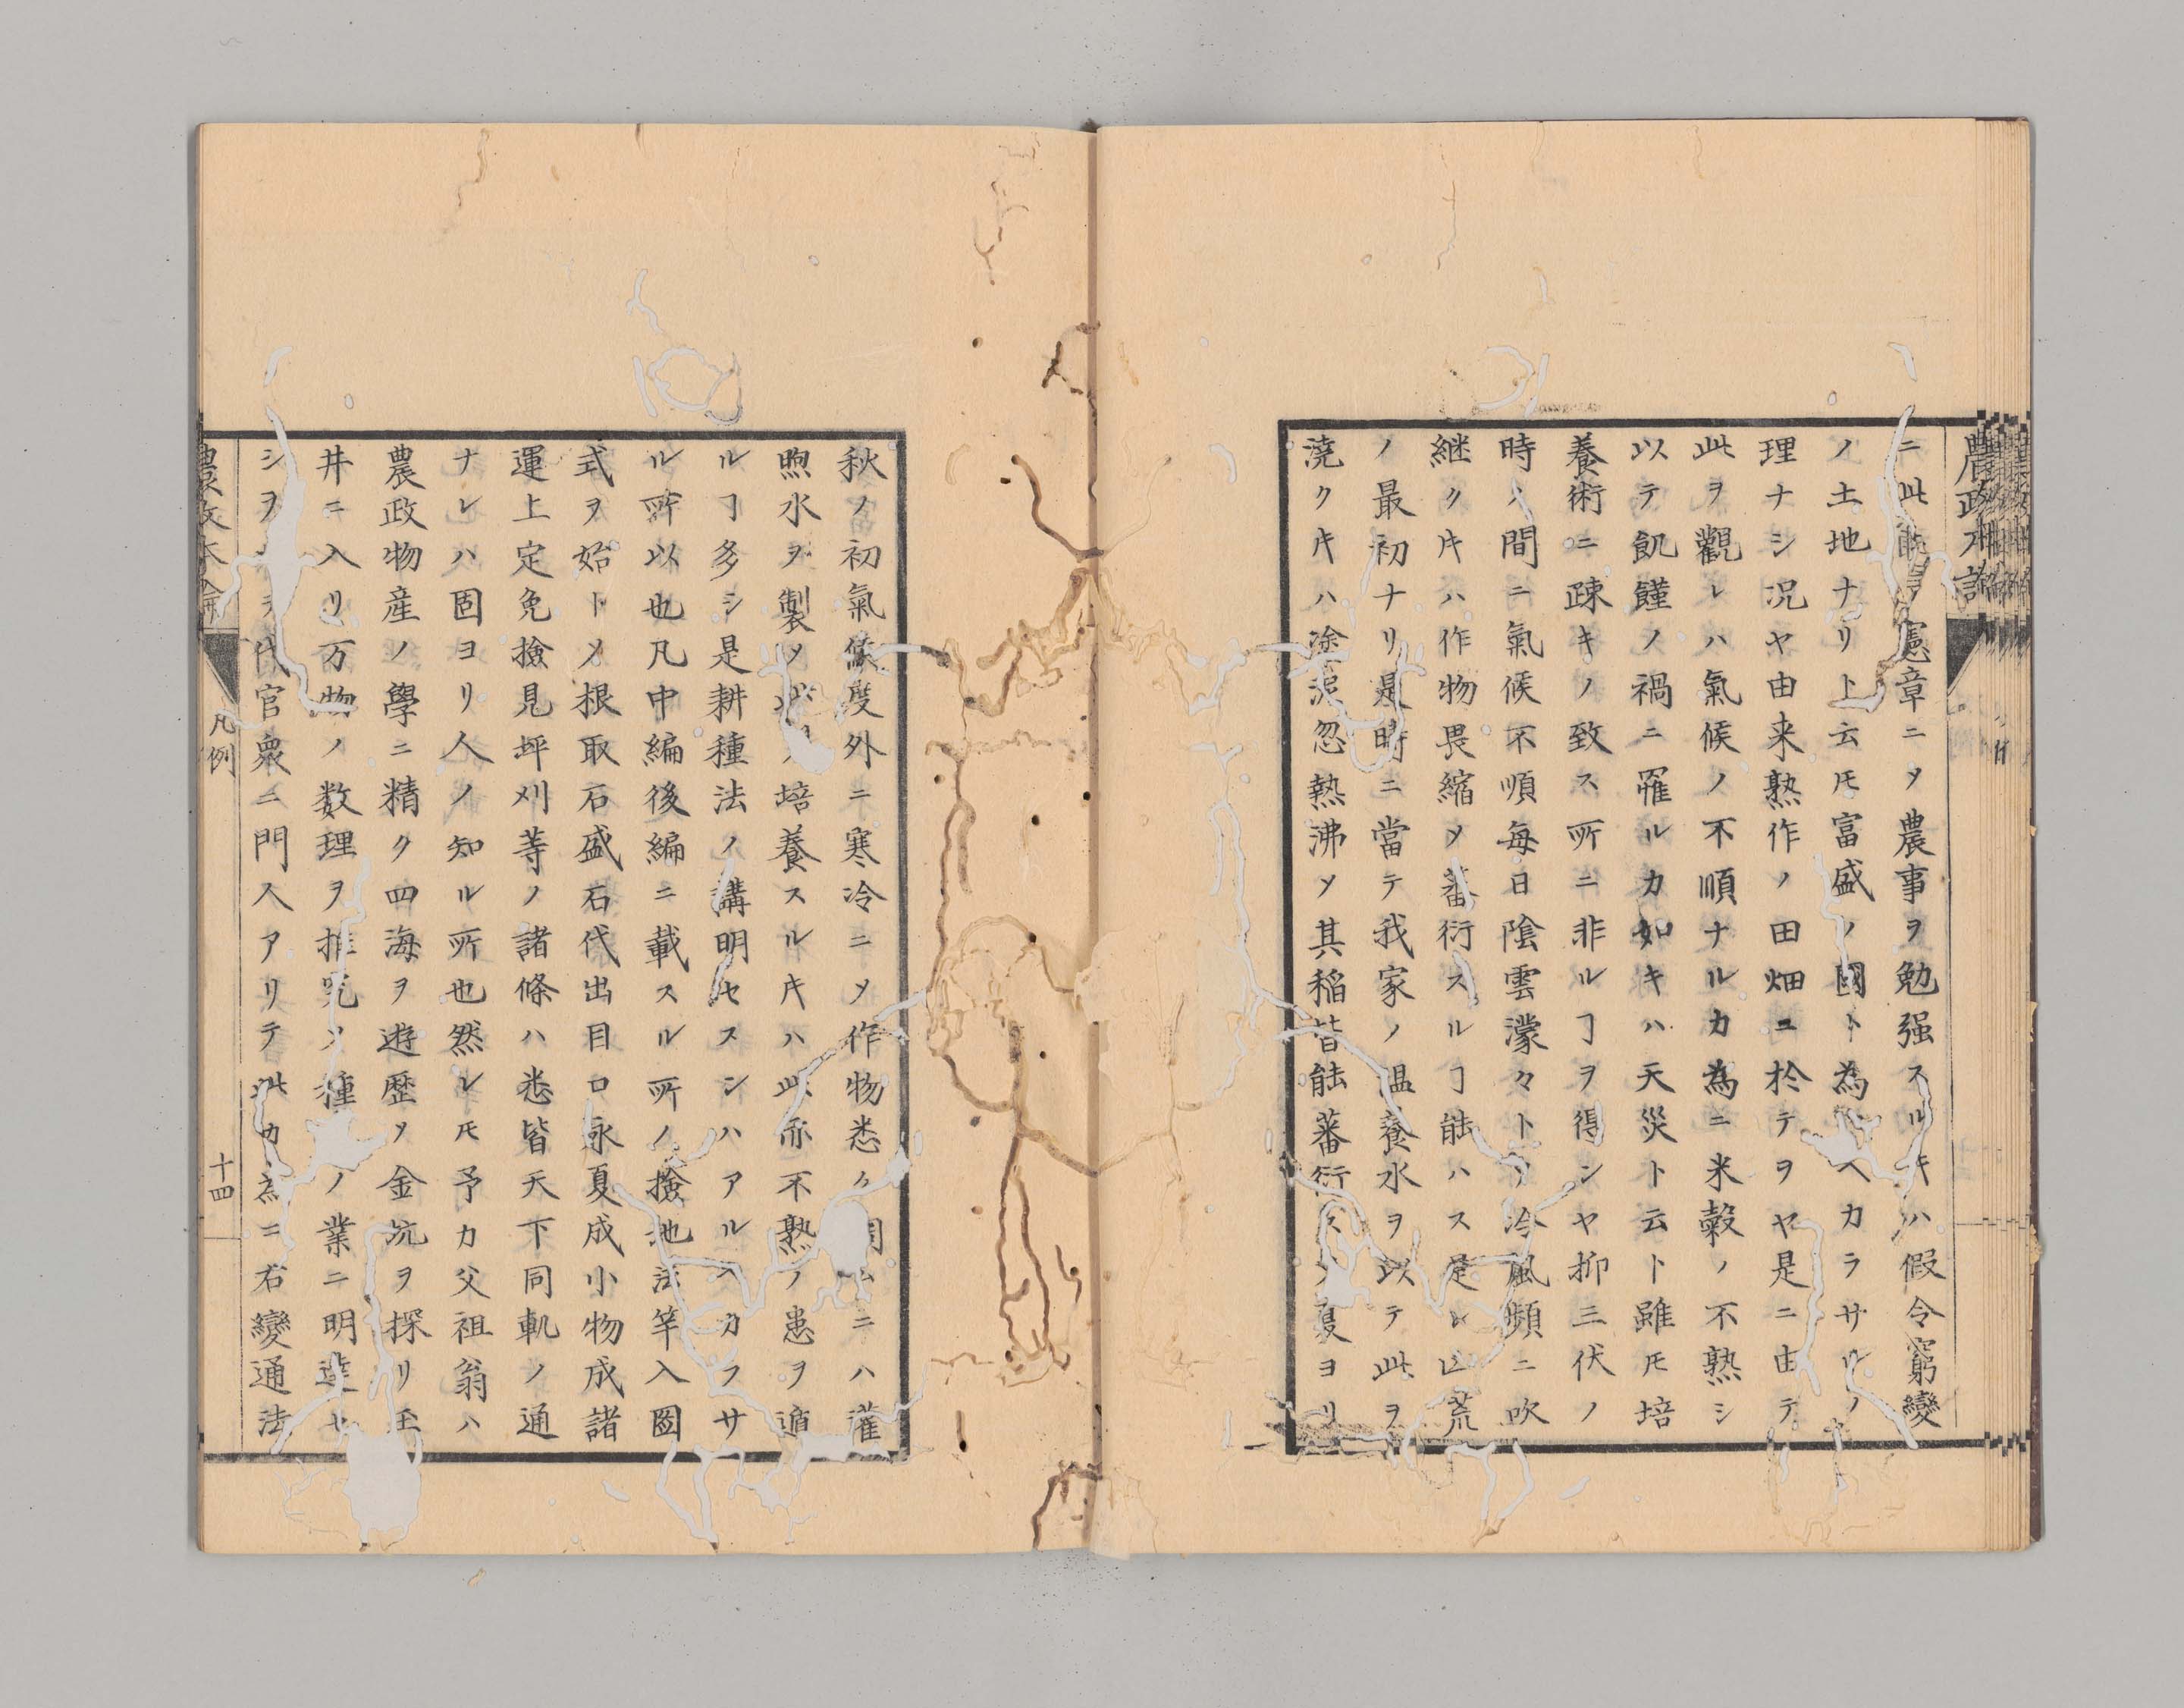 農政本論
ニ此 憲章ニ〆農事ヲ勉强スルキハ假令窮變
ノ土地ナリト云𪜈富盛ノ國ト為 ヘカラサルノ
理ナシ况ヤ由来熟作ノ田畑ニ於テヲヤ是ニ由テ
此ヲ觀レハ氣候ノ不順ナルカ為ニ米穀ノ不熟シ
以テ飢饉ノ禍ニ罹ルカ如キハ天災ト云ト雖𪜈培
養術ニ踈キノ致ス所ニ非ルヿヲ得ンヤ抑三伏ノ
時ノ間ニ氣候不順毎日陰雲濛々ト〆冷風頻ニ吹
継クキハ作物畏縮〆蕃衍スルヿ能ハス是レ凶荒
ノ最初ナリ是時ニ當テ我家ノ温養水ヲ以テ此ヲ
澆クキハ塗泥忽熱沸〆其稲皆能蕃衍ス 夏ヨリ
秋ノ初氣候度外ニ寒冷ニ〆作物悉ク ムニハ灌
煦水ヲ製〆 培養スルキハ此亦不熟ノ患ヲ遁
ルヿ多シ是耕種法ノ講明セスシハアルヘカラサ
ル所以也凡中編後編ニ載スル所ノ撿地法竿入圖
式ヲ始ト〆根取石盛石代出目口永夏成小物成諸
運上定免撿見坪刈等ノ諸條ハ悉皆天下同軌ノ通
ナレハ固ヨリ人ノ知ル所也然レ𪜈予カ父祖翁ハ
農政物産ノ學ニ精ク四海ヲ遊歴〆金坑ヲ探リ玉
井ニ入リ万物ノ数理ヲ推究〆種 ノ業ニ明達セ
シヲ 代官衆ニ門人アリテ此カ為ニ右變通法
農政本論
凡例
十四